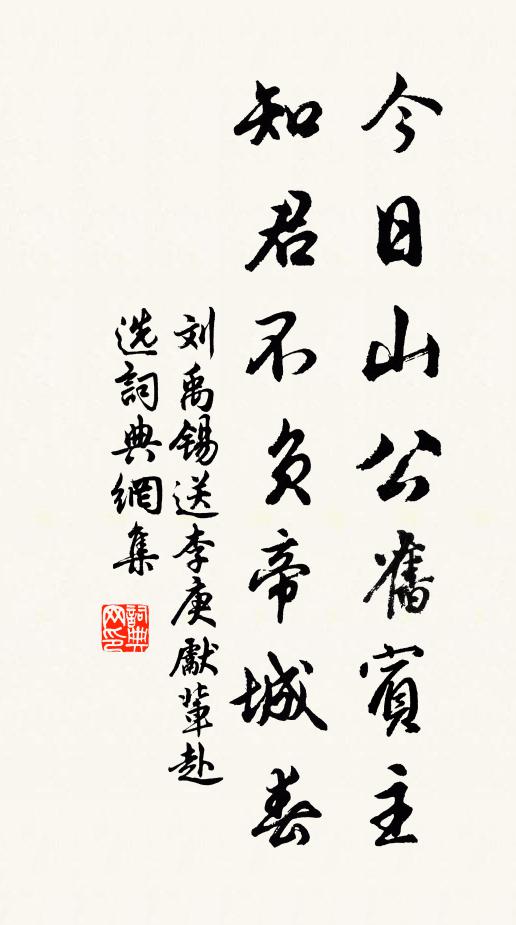 今日山公舊賓主
知君不負帝城春
刘禹锡送李庚獻輩赴
选詞典網集
詞典网印